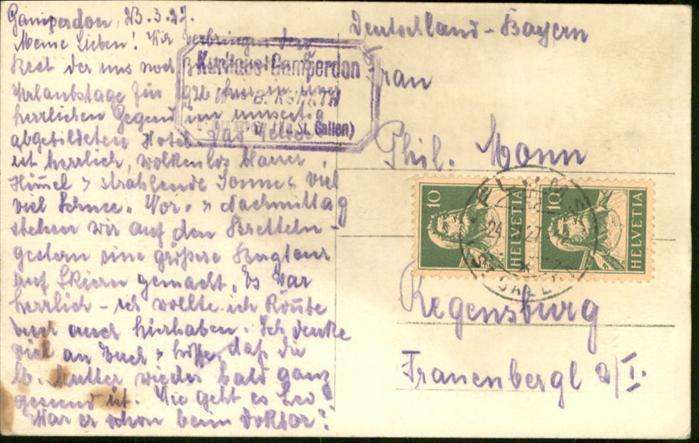 Gamperdon, 23.3.27.
Meine Lieben! Wir verbringen den
Rest der uns noch
Urlaubstage für
herrlichen Gegend im umseitig
abgebildeten Hotel. Das Wetter
ist herrlich, wolkenlos blauer
Himmel & strahlende Sonne & viel
viel Schnee. Vor- & Nachmittag
stehen wir auf den Bretteln -
gestern eine größere
auf Skiern gemacht. Es war
herrlich - ich wollte ich könnte
Euch auch hierhaben. Ich denke
viel an Euch & hoffe daß die
lb. Mutter wieder bald ganz
gesund ist. Wie geht es Leo?
War er schon beim Doktor?
Kurhaus Gamperdon
(St. Gallen)
Deutschland - Bayern
Frau
Phil. Mann
Regensburg
Frauenbergl 2/I.
10
HELVETIA
10
HELVETIA